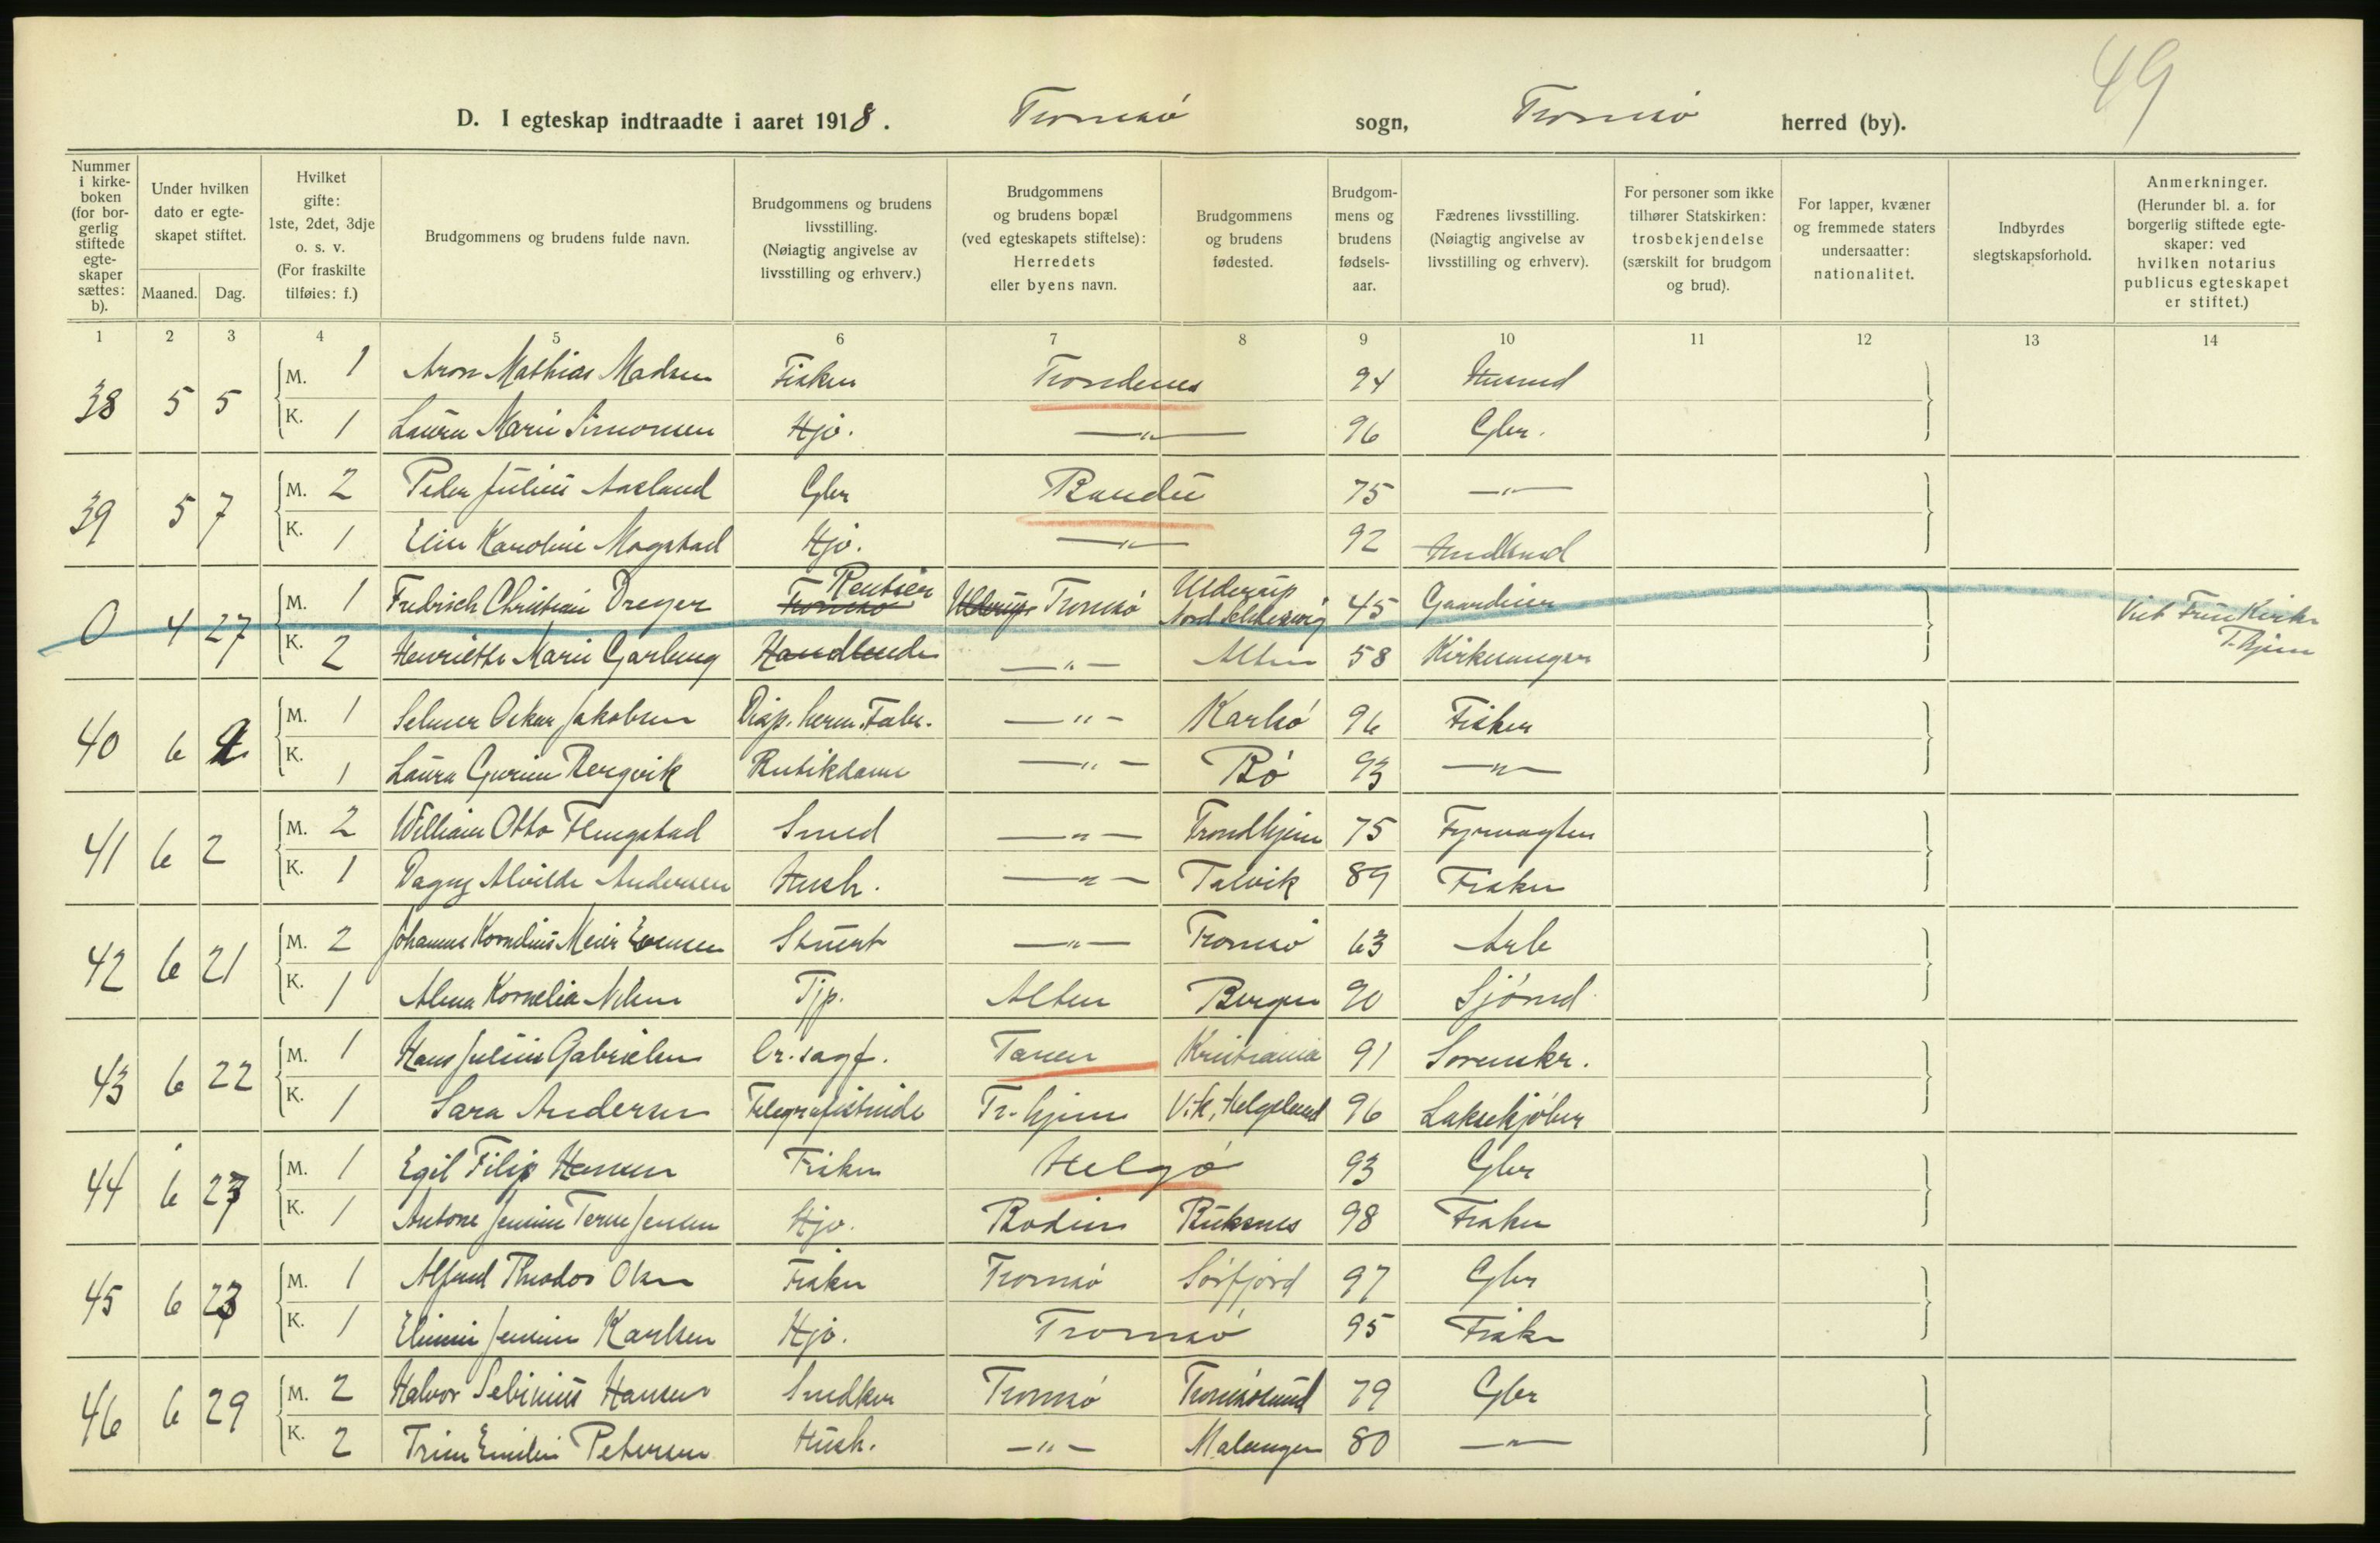 49
D. I egteskap indtraadte i aaret 1918. Tromsø sogn, Tromsø herred (by).
Nummer i kirkeboken (for borgerlig stiftede egteskaper sættes: b).
Under hvilken dato er egteskapet stiftet.
Maaned. Dag.
Hvilket gifte: 1ste, 2det, 3dje o. s. v. (For fraskilte tilføies: f.)
Brudgommens og brudens fulde navn.
Brudgommens og brudens livsstilling. (Nøiagtig angivelse av livsstilling og erhverv.)
Brudgommens og brudens bopæl (ved egteskapets stiftelse): Herredets eller byens navn.
Brudgommens og brudens fødested.
Brudgommens og brudens fødselsaar.
Fædrenes livsstilling. (Nøiagtig angivelse av livsstilling og erhverv).
For personer som ikke tilhører Statskirken: trosbekjendelse (særskilt for brudgom og brud).
For lapper, kvæner og fremmede staters undersaatter: nationalitet.
Indbyrdes slegtskapsforhold.
Anmerkninger. (Herunder bl. a. for borgerlig stiftede egteskaper: ved hvilken notarius publicus egteskapet er stiftet.)
1 2 3 4 5 6 7 8 9 10 11 12 13 14
38 5 5 M. 1 Aron Mathias Madsen Fisker Trondenes 94 Husmd
K. 1 Laura Marie Simonsen Hjo. —"— 96 Gbr.
39 5 7 M. 2 Peder Julius Aasland Gbr Bardu 75 —"—
K. 1 Elise Karoline Mogstad Hjo. —"— 92
0 4 27 M. 1 Fredrich Christian Dreyer Tromsø Rentier Ulderup Tromsø Ulderup Nord Schleswig 45 Gaardeier Vit Frue Kirke T.hjem
K. 2 Henriette Marie Garberg Handlende —"— Alten 58 Kirkesanger
40 6 2 M. 1 Selmer Oskar Jakobsen Disp. herm. Fabr. —"— Karlsø 96 Fisker
K. 1 Laura Gurine Bergvik Butikdame —"— Bø 93 —"—
41 6 2 M. 2 William Otto Flengstad Smed —"— Trondhjem 75 Fyrvagter
K. 1 Dagny Alvilde Andersen Hush. —"— Talvik 89 Fisker
42 6 21 M. 2 Johannes Kornelius Meier Evensen Stuert —"— Tromsø 63 Arb
K. 1 Alma Kornelia Nilsen Tjp. Alten Bergen 90 Sjømd
43 6 22 M. 1 Hans Julius Gabrielsen Or.sagf. Tanen Kristiania 91 Sorenskr.
K. 1 Sara Andersen Telegrafistinde Tr.hjem Vik, Helgeland 96 Laksekjøber
44 6 23 M. 1 Egil Filip Hansen Fisker Helgø 93 Gbr
K. 1 Antone Jensine Terese Jensen Hjo. Bodin Buksnes 98 Fisker
45 6 23 M. 1 Alfred Theodor Olsen Fisker Tromsø Sørfjord 97 Gbr
K. 1 Elimine Jensine Karlsen Hjo. Tromsø 95 Fisker
46 6 29 M. 2 Halvor Sebinius Hansen Snedker Tromsø Tromsøsund 79 Gbr
K. 2 Trine Emilie Petersen Hush. —"— Malangen 80 —"—